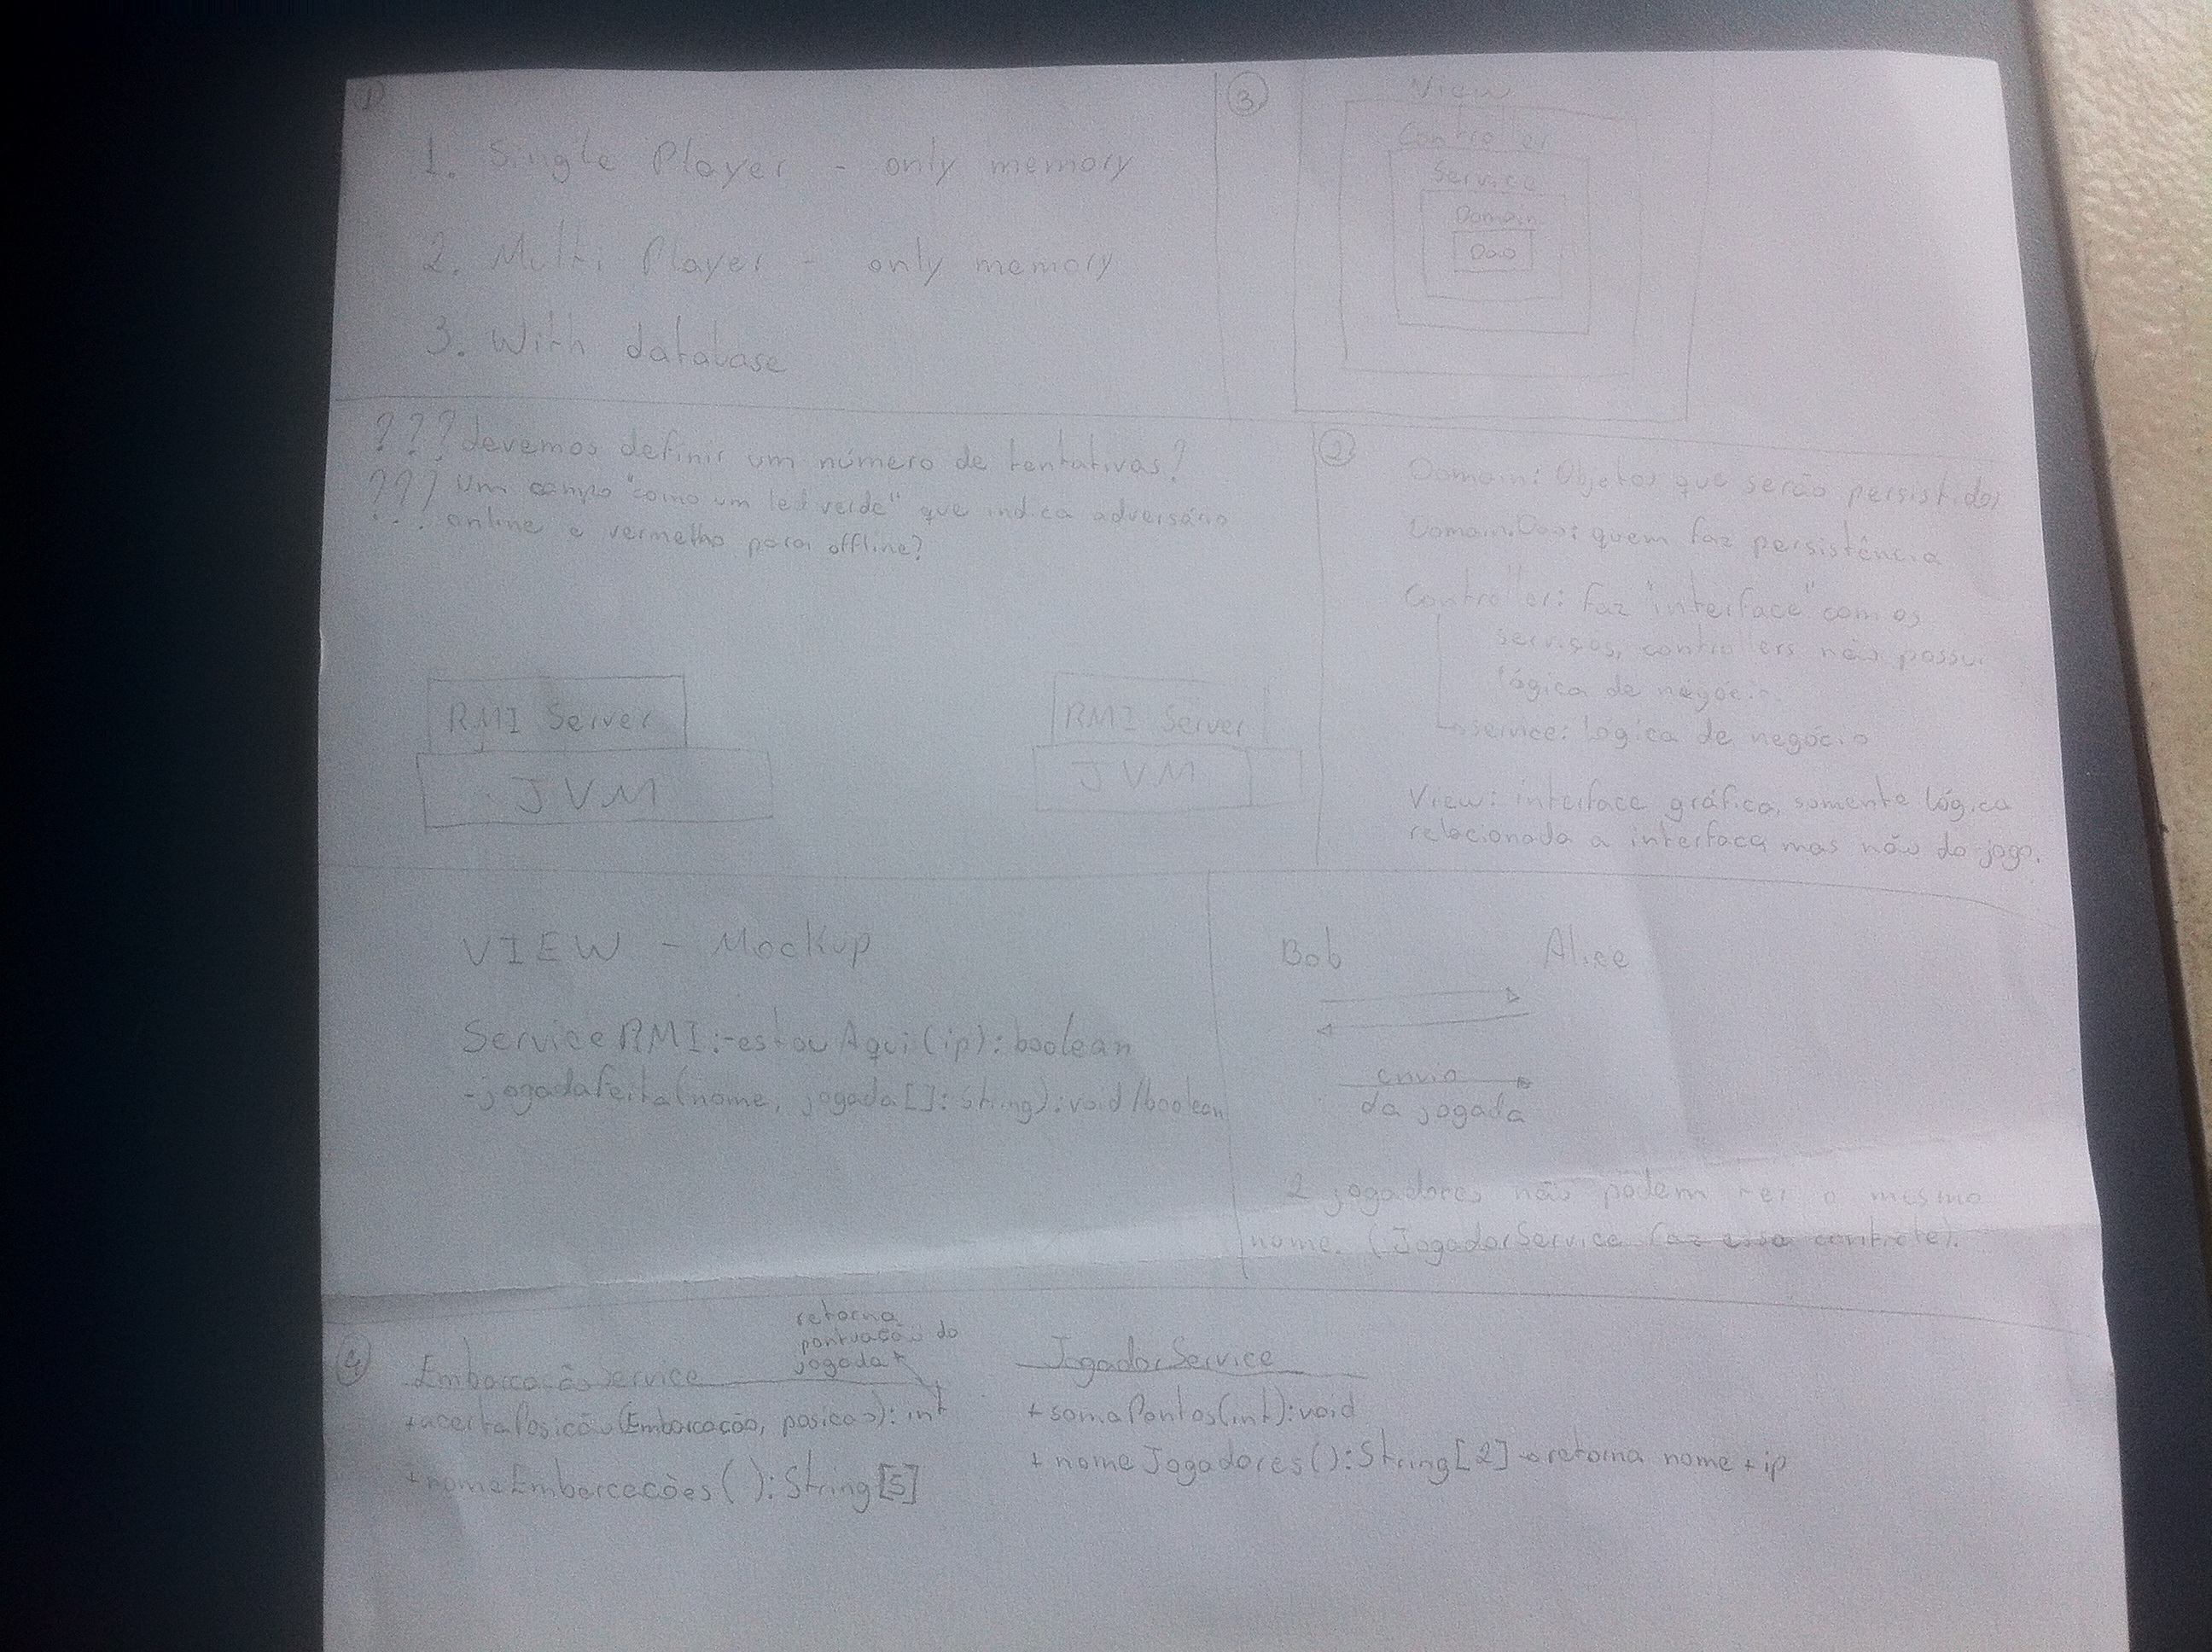 1
1. Single Player - only memory
2. Multi Player - only memory
3. With database
3
View
Controller
Service
Domain
Dao
??? devemos definir um número de tentativas?
??? Um campo "como um led verde" que indica adversário
online e vermelho para offline?
RMI Server
JVM
RMI Server
JVM
2
Domain: Objetos que serão persistidos
Domain.Dao: quem faz persistência
Controller: faz "interface" com os
serviços, controllers não possui
lógica de negócio
service: lógica de negócio
View: interface gráfica, somente lógica
relacionada a interface mas não do jogo.
VIEW - Mockup
Service RMI:-estou Aqui(ip): boolean
-jogadaFeita(nome, jogada[]: String): void/boolean
Bob Alice
envio
da jogada
2 jogadores não podem ter o mesmo
nome. (JogadorService faz esse controle).
4
EmbarcaçãoService
retorna
pontuação do
jogada
+acertaPosicão(Embarcação, posicao): int
+nomeEmbarcacões(): String[5]
JogadorService
+somaPontos(int): void
+nomeJogadores(): String[2] → retorna nome + ip